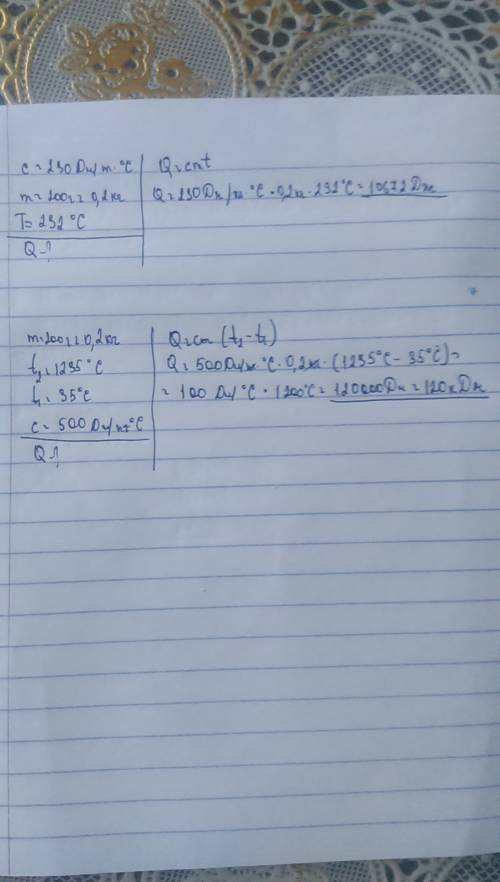 c = 230 Дж/м·°С
Q = cmt
m = 200г = 0,2кг
Q = 230 Дж/кг·°С · 0,2кг · 232°С = 10672 Дж
T = 232°С
Q - ?
m = 200г = 0,2кг
Q = cm (t₂ - t₁)
t₂ = 1235°С
Q = 500 Дж/кг °С · 0,2кг · (1235°С - 35°С) =
t₁ = 35°С
= 100 Дж/°С · 1200°С = 120000 Дж = 120кДж
c = 500 Дж/кг·°С
Q - ?